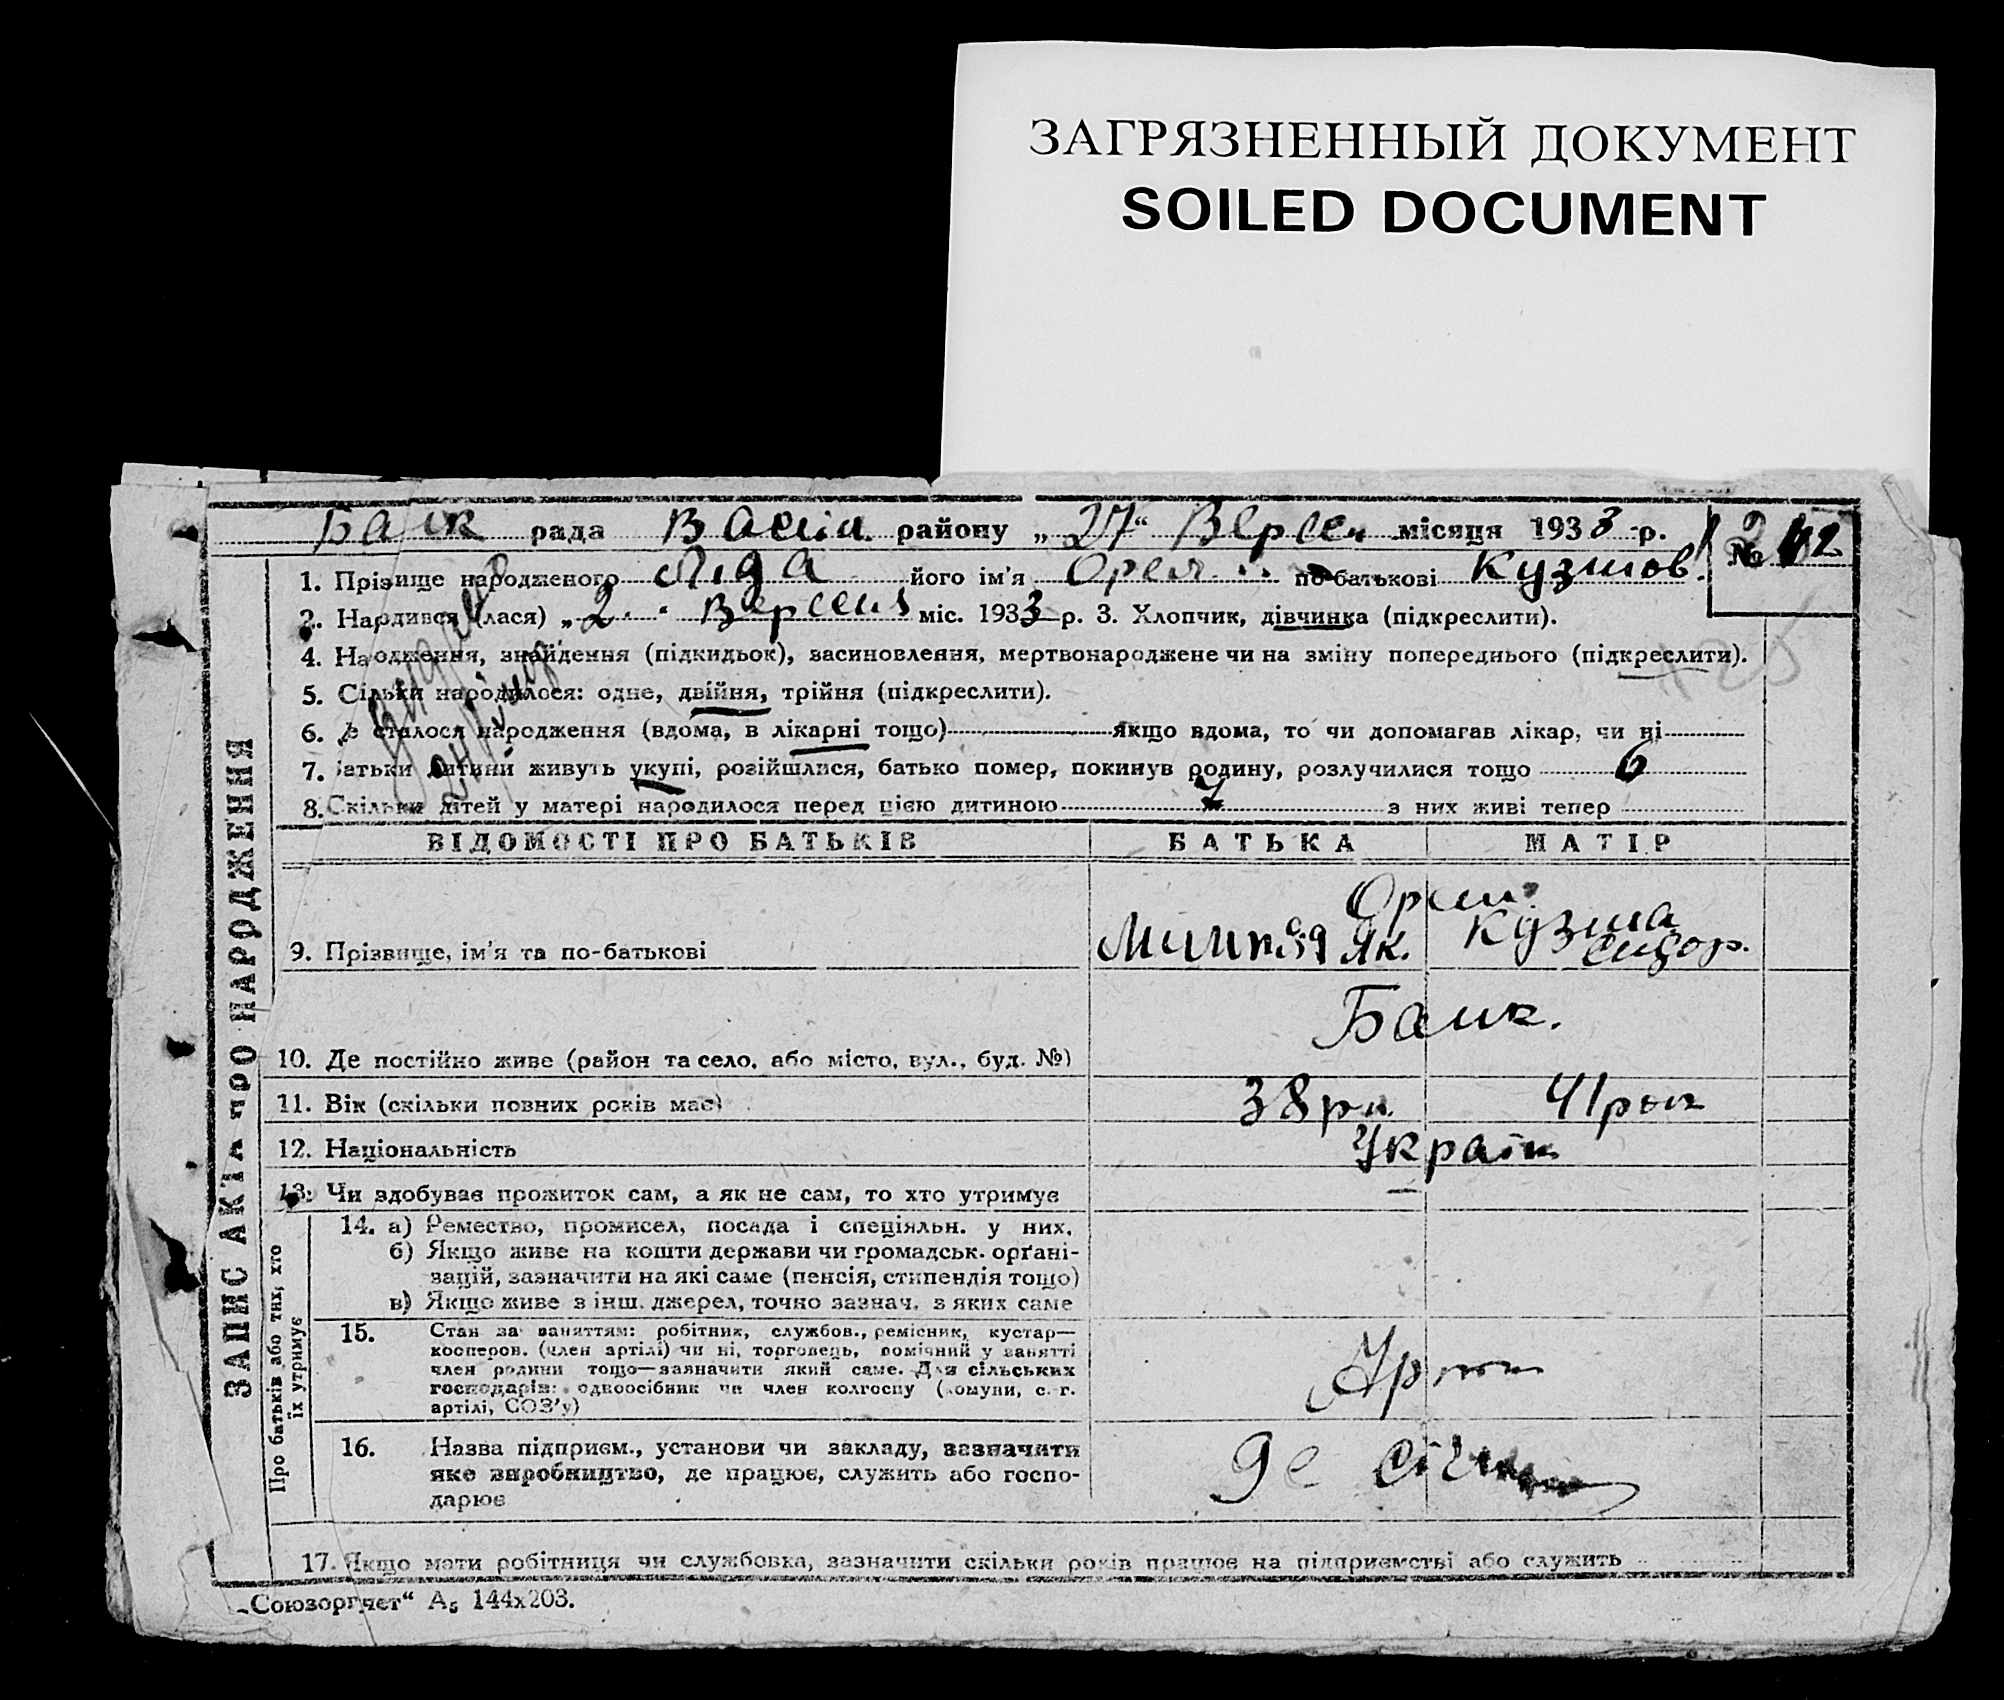 ЗАГРЯЗНЕННЫЙ ДОКУМЕНТ
SOILED DOCUMENT
рада району „27“ Версен місяця 1933 р. №
1. Прізвище народженого Ліда його ім'я Орел по-батькові Кузмов.
2. Народився (лася) „2“ Версень міс. 1933 р. 3. Хлопчик, дівчинка (підкреслити).
4. Народження, знайдення (підкидьок), засиновлення, мертвонароджене чи на зміну попереднього (підкреслити).
5. Сільки народилося: одне, двійня, трійня (підкреслити).
6. Де сталося народження (вдома, в лікарні тощо) якщо вдома, то чи допомагав лікар, чи ні
7. Батьки дитини живуть укупі, розійшлися, батько помер, покинув родину, розлучилися тощо 6
8. Скільки дітей у матері народилося перед цією дитиною з них живі тепер
ЗАПИС АКТА ПРО НАРОДЖЕННЯ
ВІДОМОСТІ ПРО БАТЬКІВ БАТЬКА МАТІР
9. Прізвище, ім'я та по-батькові Як. Кузма Сидор.
10. Де постійно живе (район та село, або місто, вул., буд. №)
11. Вік (скільки повних років має) 38 41 рок
12. Національність Україн
13. Чи здобуває прожиток сам, а як не сам, то хто утримує —
Про батьків або тих, хто
їх утримує
14. а) Ремество, промисел, посада і спеціяльн. у них.
б) Якщо живе на кошти держави чи громадськ. орґані-
зацій, зазначити на які саме (пенсія, стипендія тощо)
в) Якщо живе з інш. джерел, точно зазнач. з яких саме
15. Стан за заняттям: робітник, службов., ремісник, кустар—
кооперов. (член артілі) чи ні, торговець, помічний у занятті
член родини тощо—зазначити який саме. Для сільських
господарів: одноосібник чи член колгоспу (комуни, с.-г.
артілі, СОЗ'у)
16. Назва підприєм., установи чи закладу, зазначити
яке виробництво, де працює, служить або госпо-
дарює
17. Якщо мати робітниця чи службовка, зазначити скільки років працює на підприємстві або служить
„Союзоргучет“ А₅ 144х203.